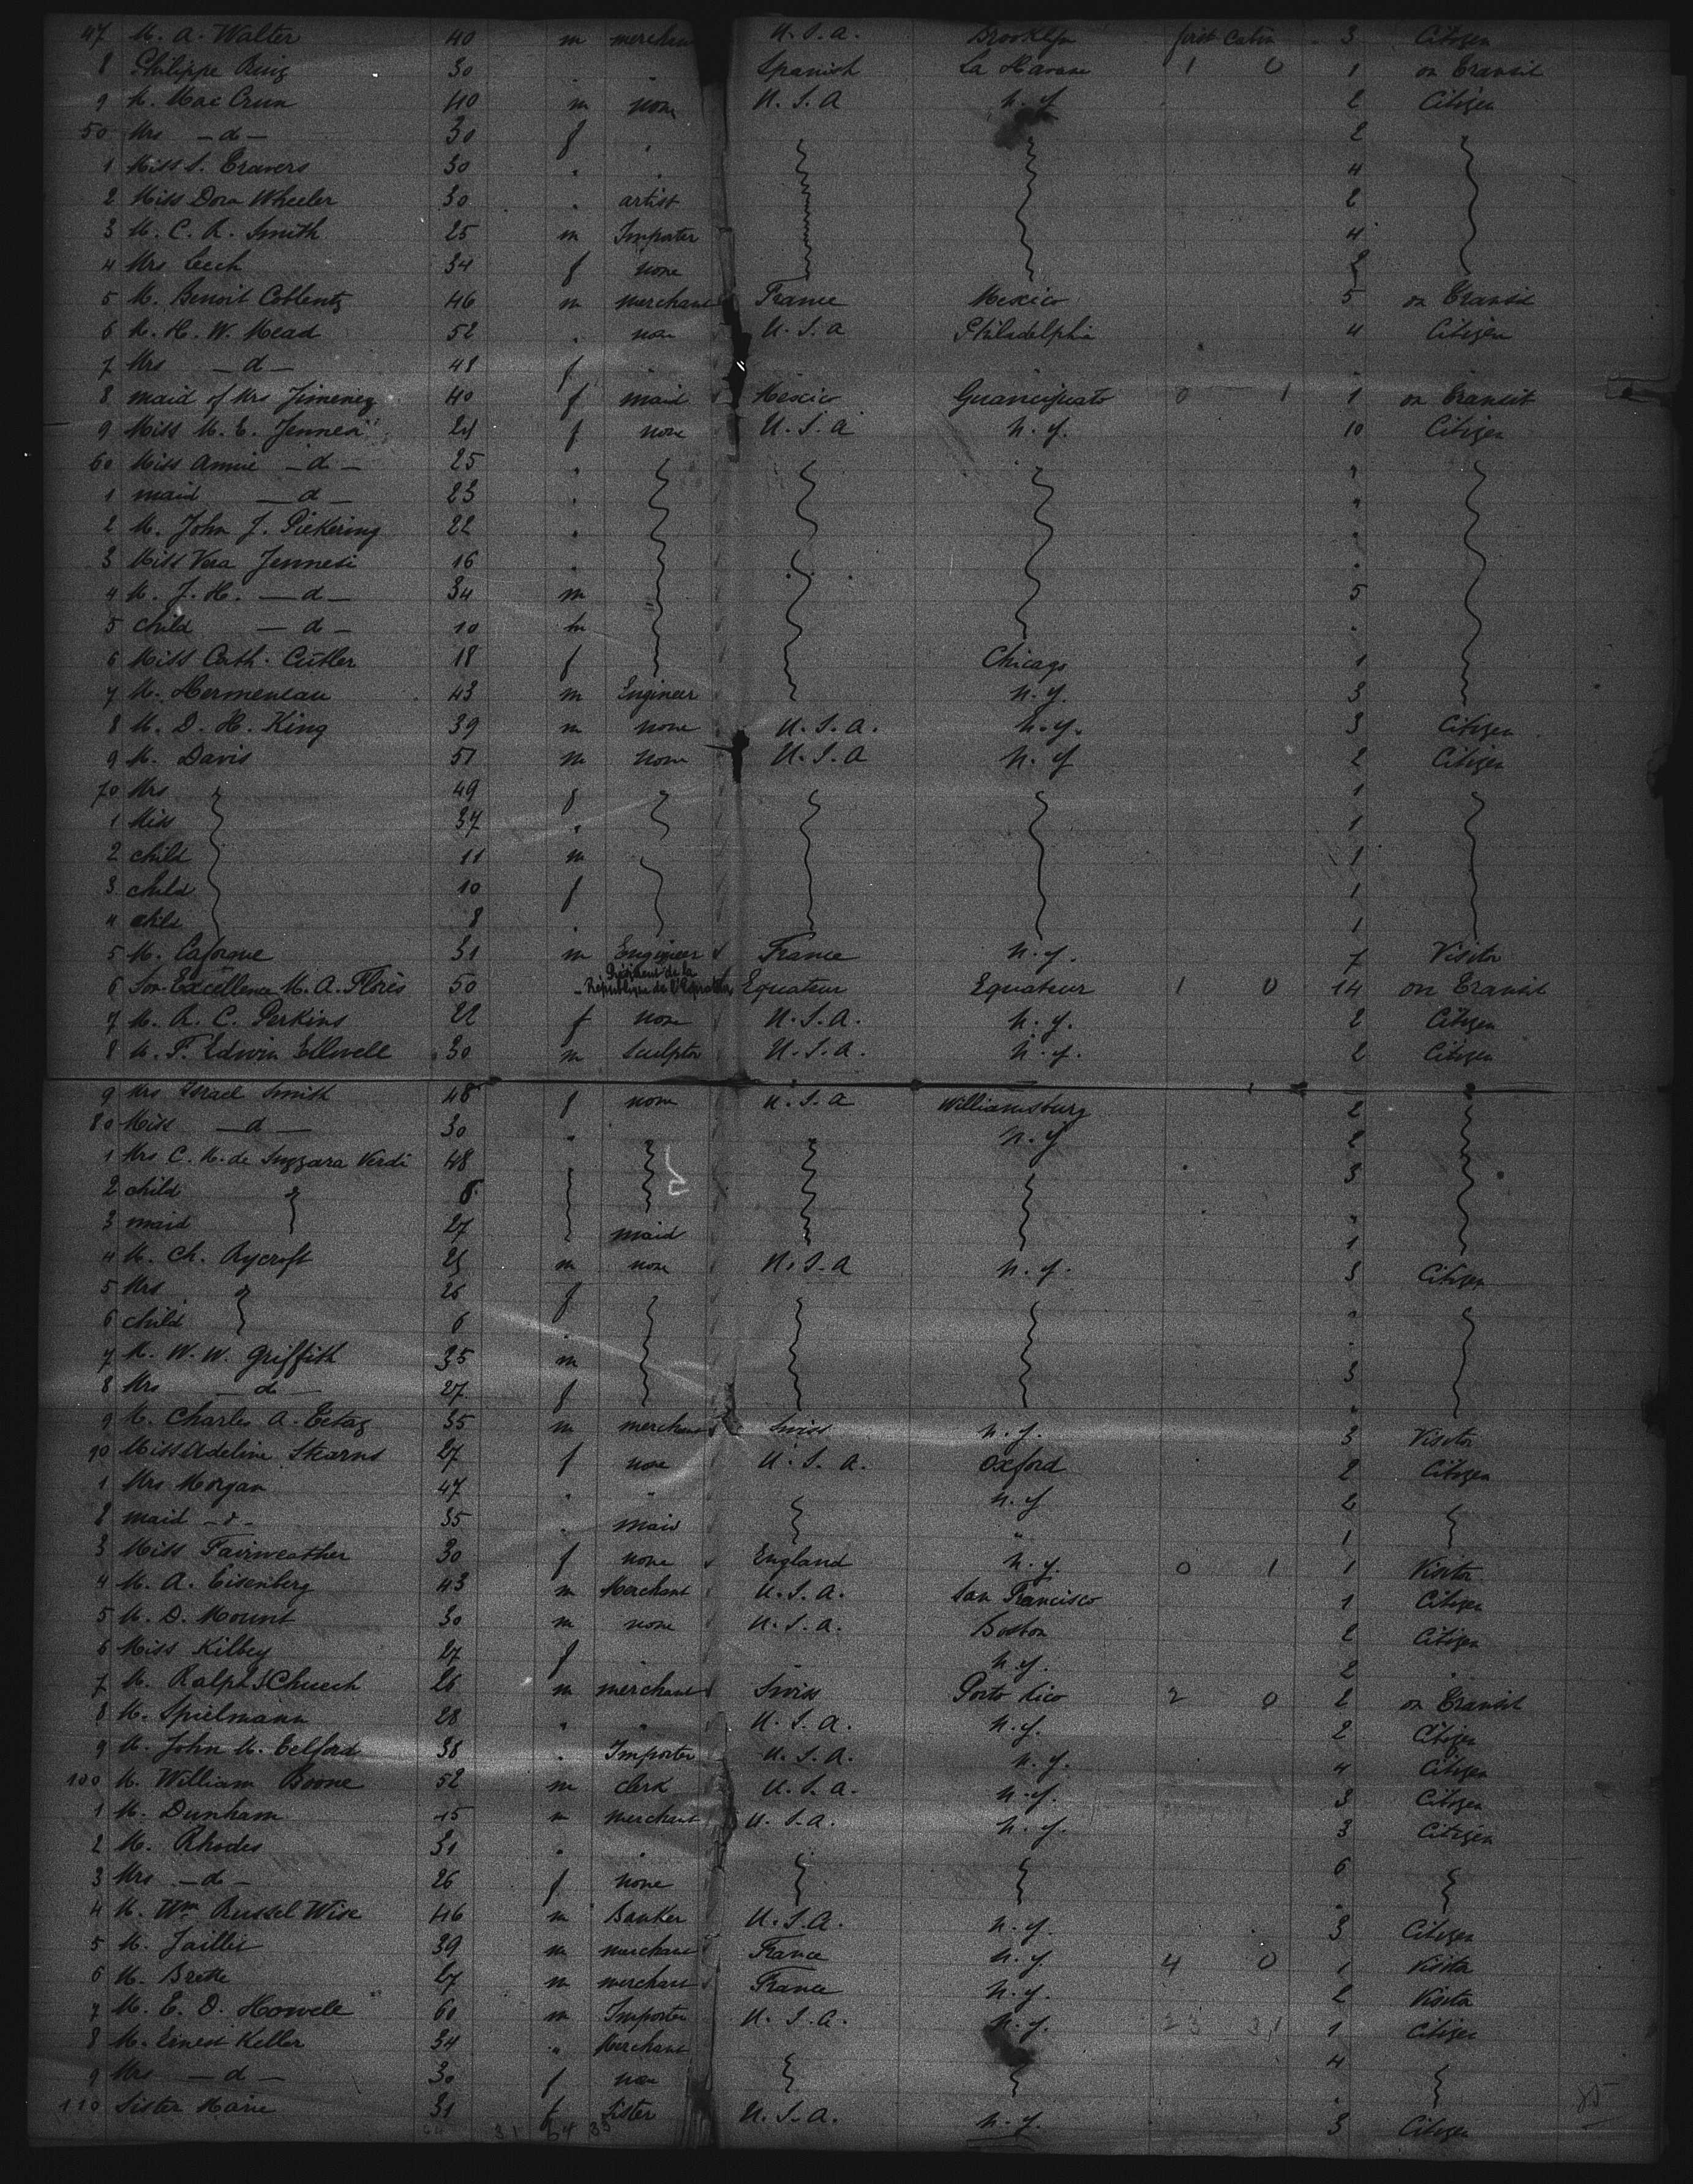 47 M. A. Walter 40 m merchan U.S.A. Brooklyn first Cabin 3 Citizen
8 Philippe Ruiz 30 Spanish La Havane 1 0 1 on Transit
9 M. Mac Crun 40 m none U.S.A n.y 2 Citizen
50 Mrs —d— 30 f 2
1 Miss S. Travers 30 4
2 Miss Dora Wheeler 30 artist 2
3 M. C. R. Smith 25 m Importer 4
4 Mrs Cech 34 f none 2
5 M. Benoit Coblentz 46 m merchant France Mexico 5 on Transit
6 M. H. W. Mead 52 none U.S.A Philadelphia 4 Citizen
7 Mrs —d— 48 f
8 maid of Mrs Jimenez 40 f maid Mexico 0 1 1 on transit
9 Miss M. E. f none U.S.A n.y. 10 Citizen
60 Miss Annie —d— 25 "
1 maid —d— 23 "
2 M. John J. Pickering 22 "
3 Miss Vera 16
4 M. J. H. —d— 34 m 5
5 child —d— 10 m
6 Miss Cath. Cutler 18 f Chicago 1
7 M. Hermeneau 43 m Engineer n.y. 3
8 M. D. H. King 39 m none U.S.A. n.y. 3 Citizen
9 M. Davis 51 m none U.S.A n.y 2 Citizen
70 Mrs 49 f 1
1 Miss 37 " 1
2 child 11 m 1
3 child 10 f 1
4 child 8 . 1
5 M. Laforgue 31 m Engineer France n.y. 7 Visitor
6 Son Excellence M. A. Florès 50 Président de la République de l'Equateur Equateur Equateur 1 0 14 on Transit
7 M. R. C. Perkins 22 f none U.S.A. n.y. 2 Citizen
8 M. F. Edwin Ellwell 30 m Sculptor U.S.A. n.y. 2 Citizen
9 Mrs Israel Smith 48 f none U.S.A Williamsburg 2
80 Miss —d— 30 " n.y 2
1 Mrs C. M. de Suzzara Verdi 48 3
2 child "
3 maid 27 maid 1
4 M. Ch. Rycroft 25 m none U.S.A n.y. 3 Citizen
5 Mrs 26 f "
6 child 6 .
7 M. W. W. Griffith 35 m 3
8 Mrs —d— 27 f "
9 M. Charles A. 35 m merchant Swiss n.y. 3 Visitor
90 Miss Adeline Stearns 27 f none U.S.A. Oxford 2 Citizen
1 Mrs Morgan 47 " " n.y 2
2 maid —d— 35 . maid " 1
3 Miss Fairweather 30 f none England n.y. 0 1 1 Visitor
4 M. A. Eisenberg 43 m Merchant U.S.A. San Francisco 1 Citizen
5 M. D. Mount 30 m none U.S.A. Boston 2 Citizen
6 Miss Kilbey 27 f . . n.y. 2 .
7 M. Ralph Schuech 26 m merchant Swiss Porto Rico 2 0 2 on Transit
8 M. Spielmann 28 " " U.S.A. n.y. 2 Citizen
9 M. John M. Telford 38 . Importer U.S.A. n.y. 4 Citizen
100 M. William Boone 52 m clerk U.S.A. n.y. 3 Citizen
1 M. Dunham m merchant U.S.A. n.y. 3 Citizen
2 M. Rhodes 31 . . 6
3 Mrs —d— 26 f none .
4 M. Wm Russel Wise 46 m Banker U.S.A. n.y. 3 Citizen
5 M. Jaillet 39 m merchant France n.y 4 0 1 Visitor
6 M. Brette 27 m merchant France n.y. 2 Visitor
7 M. E. D. Howele 60 m Importer U.S.A. n.y. 23 31 1 Citizen
8 M. Ernest Keller 34 " Merchant 4
9 Mrs —d— 30 f none .
110 Sister Marie 31 f Sister U.S.A. n.y. 3 Citizen
31 64 33
85